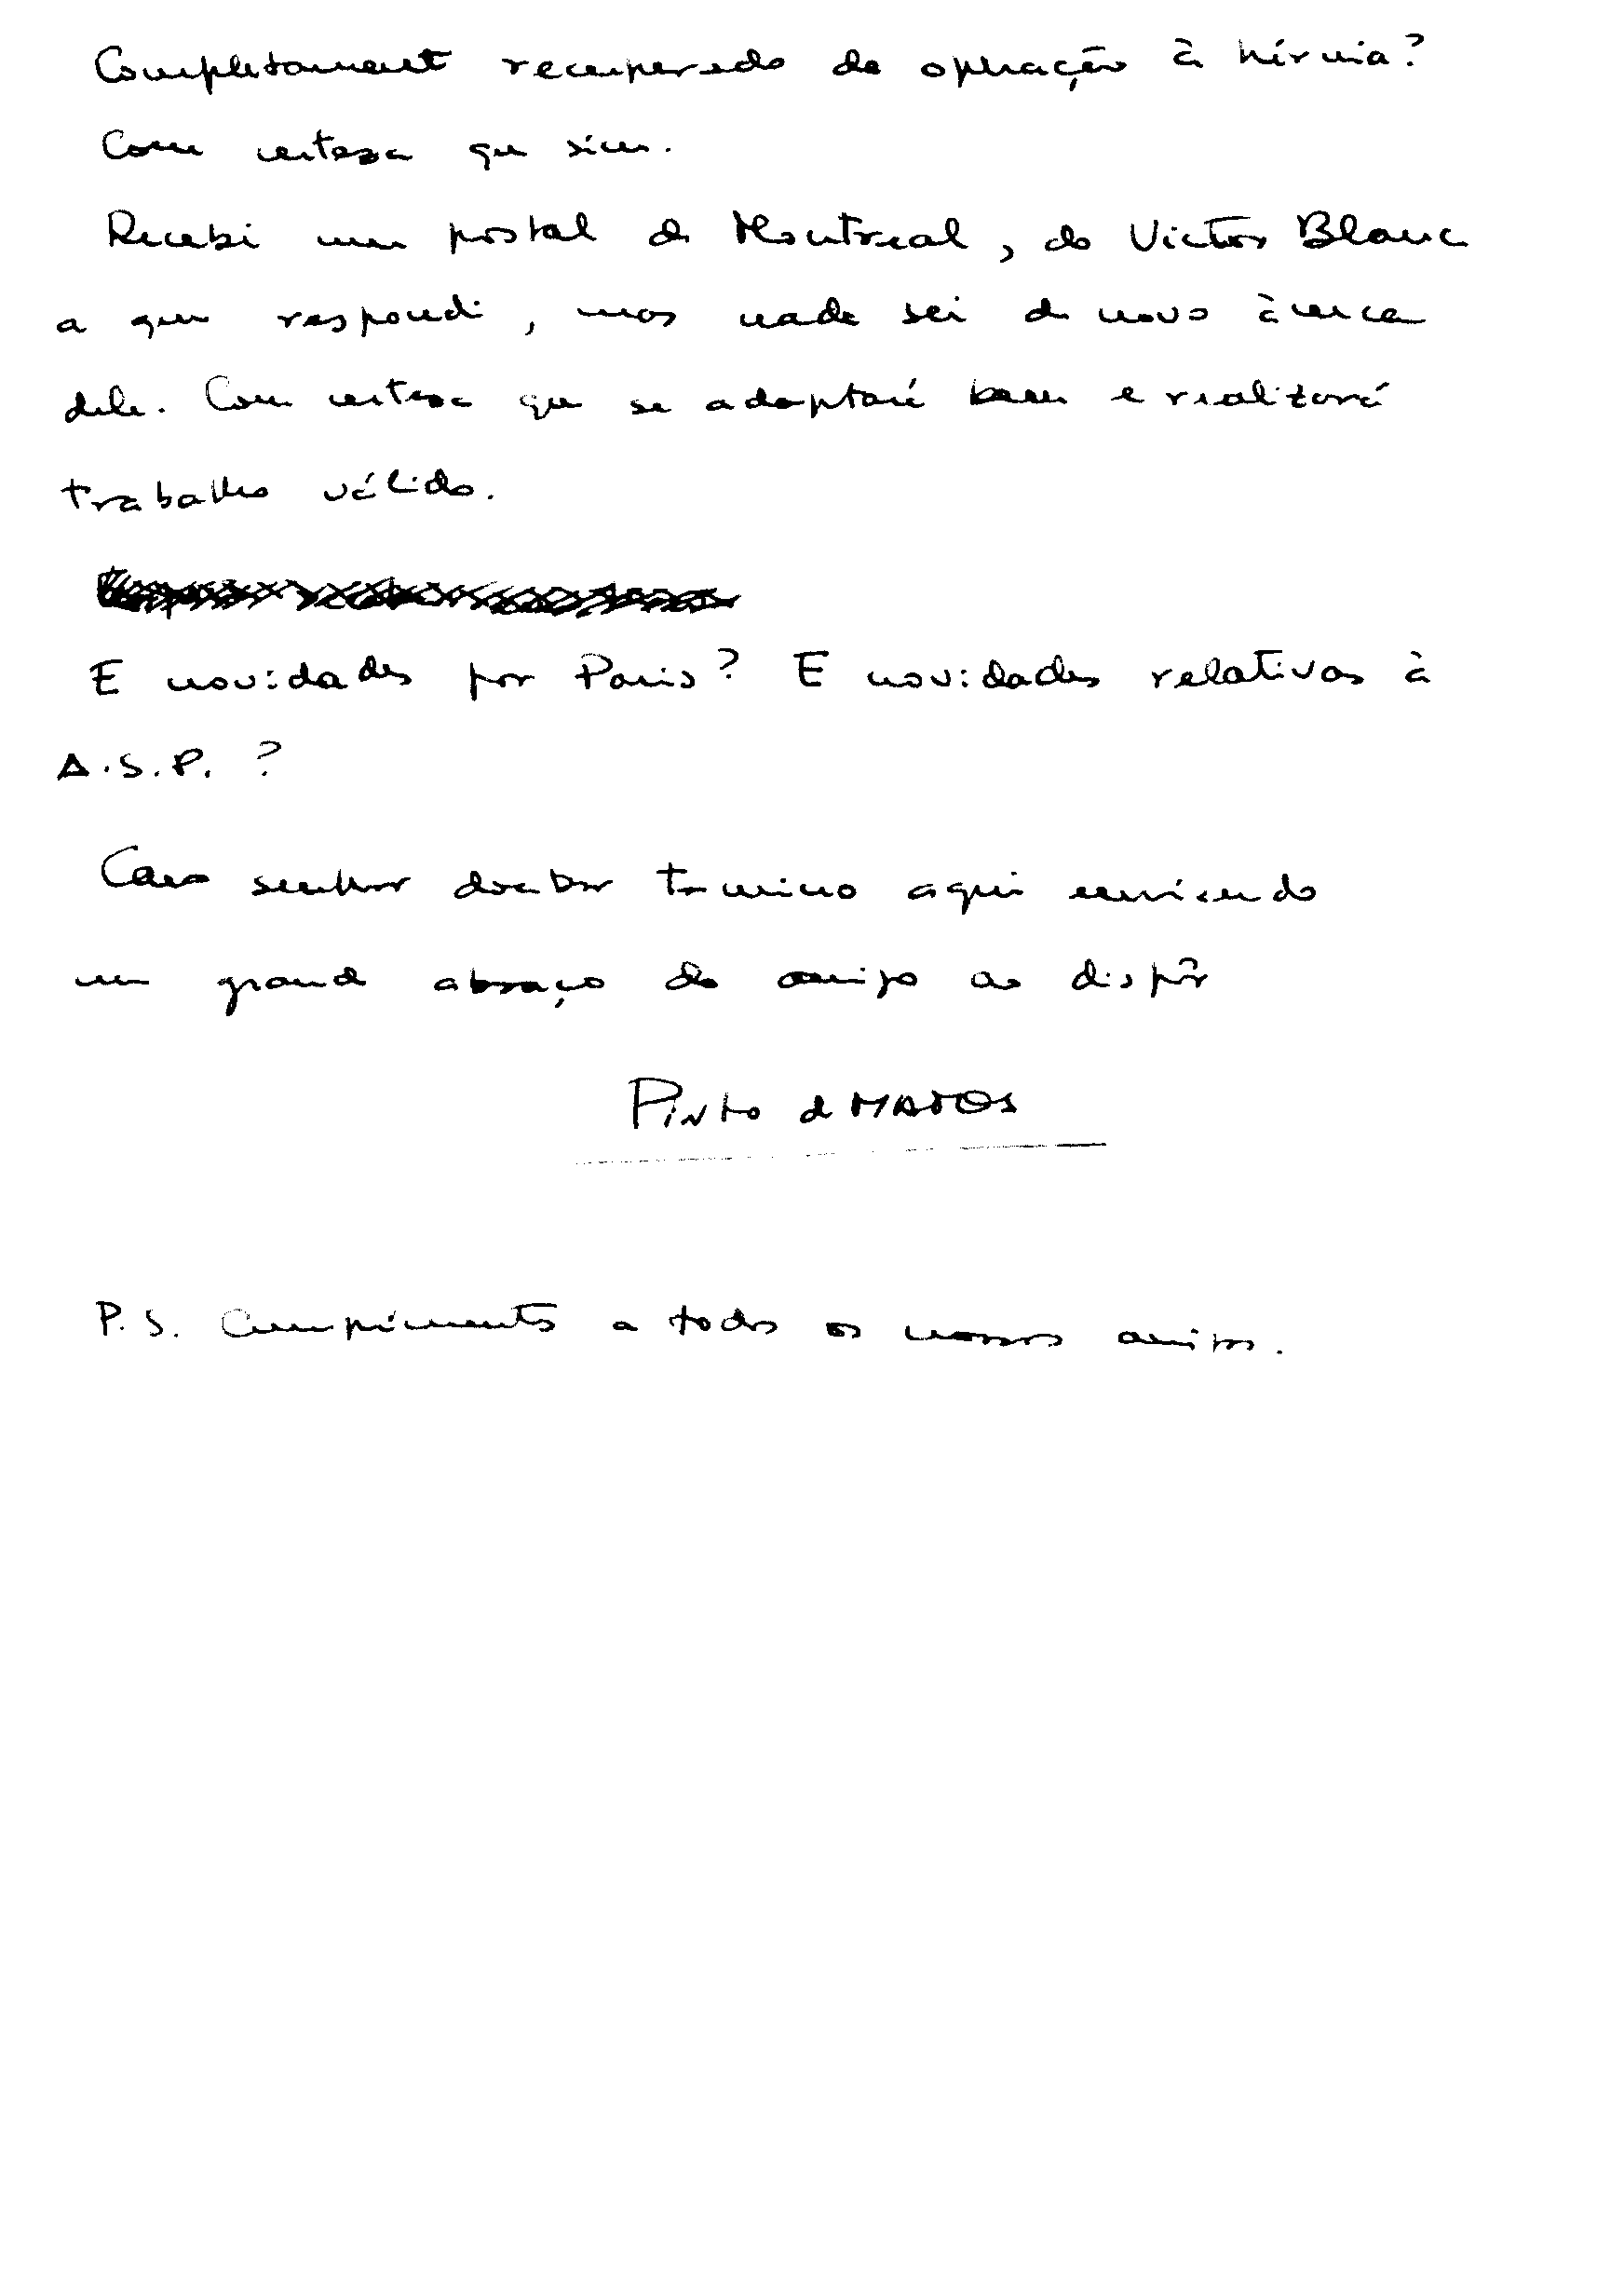 Completamente recuperado da operação à hérnia?
Com certeza que sim.
Recebi um postal de Montreal, do Victor Blanc
a quem respondi, mas nada sei de novo àcerca
dele. Com certeza que se adaptará bem e realizará
trabalho válido.
E novidades por Paris? E novidades relativas à
A.S.P. ?
Caro senhor doutor termino aqui enviando
um grande abraço do amigo ao dispôr
PINTO de MATOS
P.S. Cumprimentos a todos os nossos amigos.